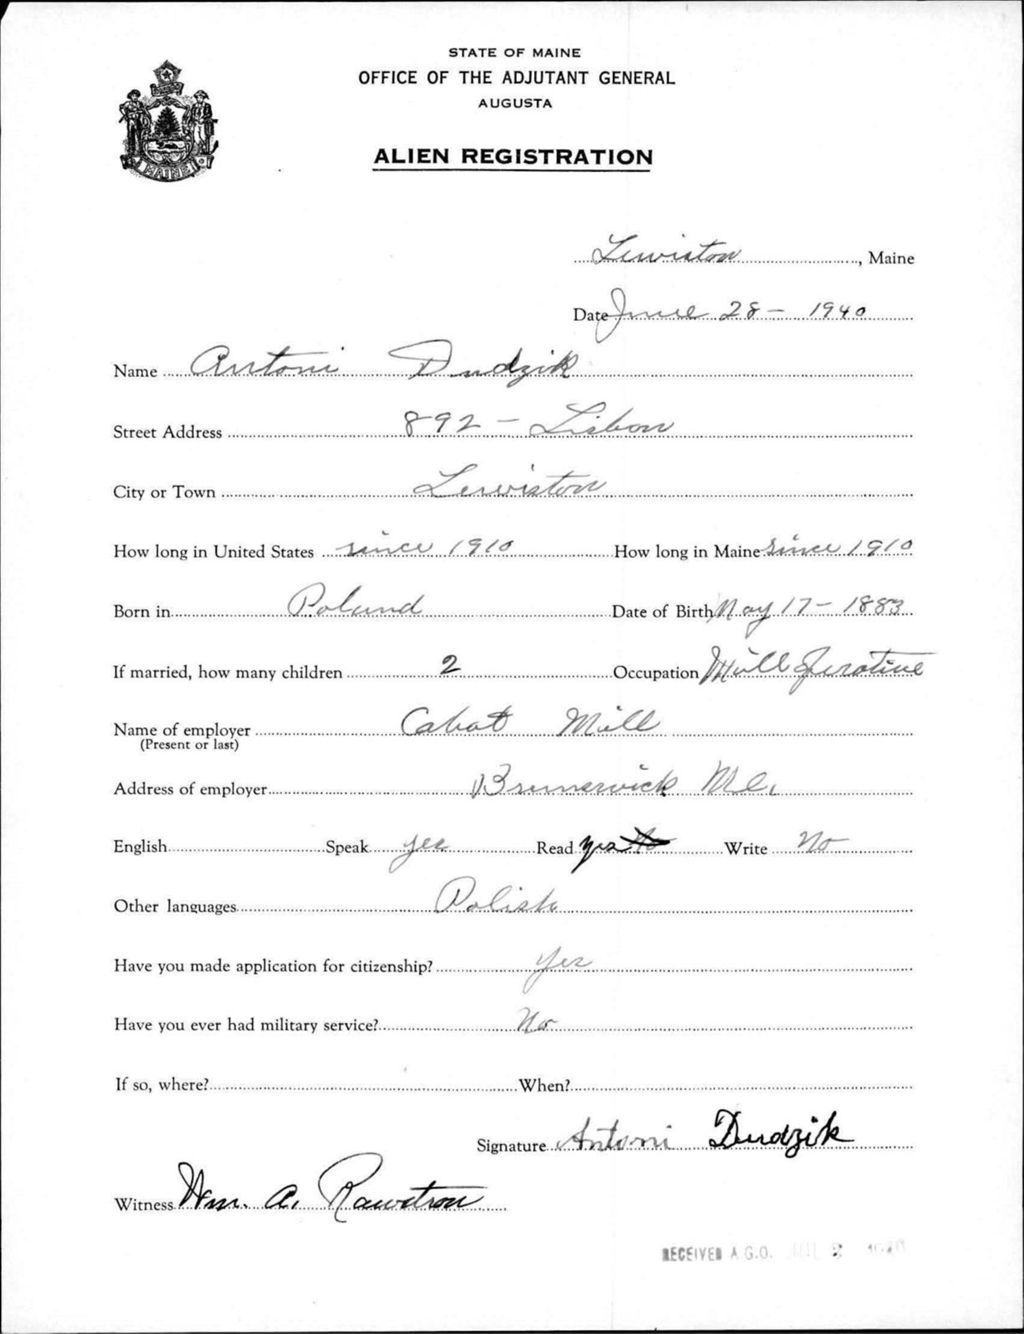 STATE OF MAINE
OFFICE OF THE ADJUTANT GENERAL
AUGUSTA
ALIEN REGISTRATION
MAINE
Lewiston, Maine
Date June 28 - 1940
Name Antoni Dudzik
Street Address 892 - Lisbon
City or Town Lewiston
How long in United States since 1910 How long in Maine since 1910
Born in Poland Date of Birth May 17 - 1883
If married, how many children 2 Occupation Mill Operative
Name of employer Cabot Mill
(Present or last)
Address of employer Brunswick Me.
English Speak yes Read yes No Write No
Other languages Polish
Have you made application for citizenship? Yes
Have you ever had military service? No
If so, where? When?
Signature Antoni Dudzik
Witness Wm. A. Rawstron
RECEIVED A.G.O. JUL 2 1940